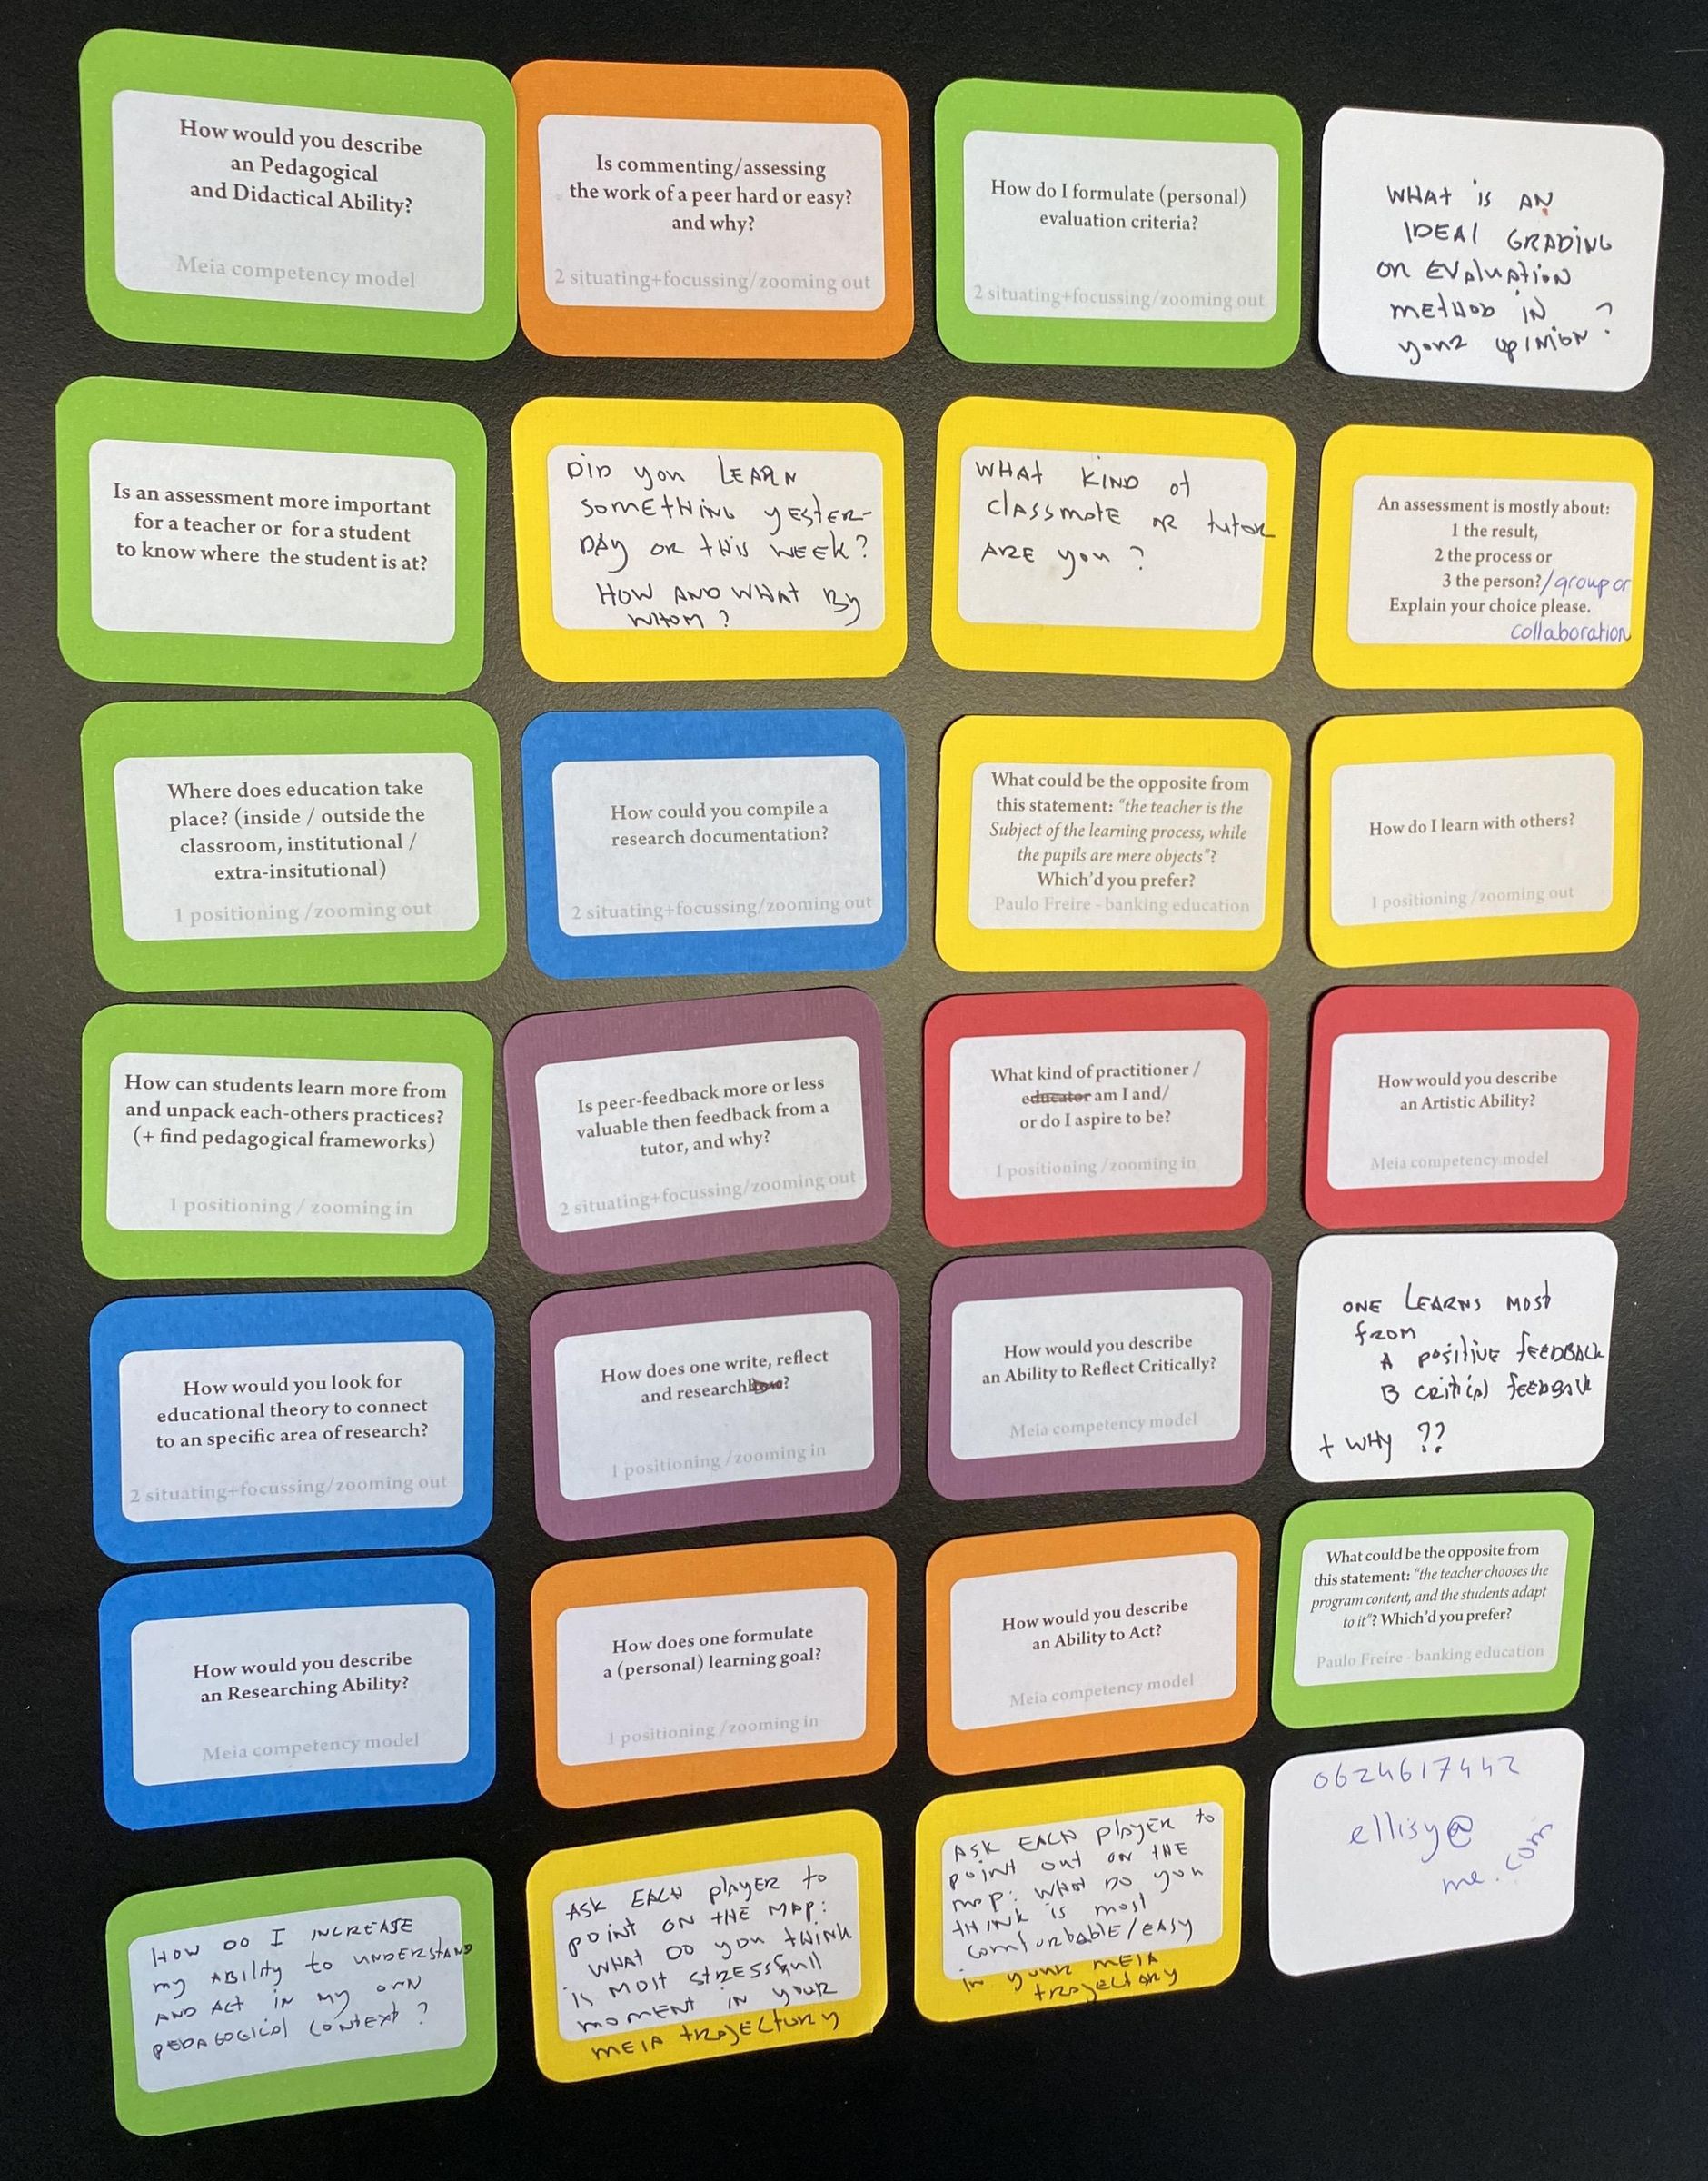 How would you describe
an Pedagogical
and Didactical Ability?
Meia competency model
Is commenting/assessing
the work of a peer hard or easy?
and why?
2 situating+focussing/zooming out
How do I formulate (personal)
evaluation criteria?
2 situating+focussing/zooming out
WHAT iS AN
IDEAl GRADiNG
OR EVAluATiON
METHOD iN
your opiNiON?
Is an assessment more important
for a teacher or for a student
to know where the student is at?
DiD you LEARN
SOMETHiNG yESTER-
DAy OR tHiS WEEK?
HOW AND WHAT By
WHOM?
WHAT KIND of
classmate OR tutor
ARE you?
An assessment is mostly about:
1 the result,
2 the process or
3 the person?/group or
Explain your choice please.
collaboration
Where does education take
place? (inside / outside the
classroom, institutional /
extra-insitutional)
1 positioning /zooming out
How could you compile a
research documentation?
2 situating+focussing/zooming out
What could be the opposite from
this statement: "the teacher is the
Subject of the learning process, while
the pupils are mere objects"?
Which'd you prefer?
Paulo Freire - banking education
How do I learn with others?
1 positioning /zooming out
How can students learn more from
and unpack each-others practices?
(+ find pedagogical frameworks)
1 positioning / zooming in
Is peer-feedback more or less
valuable then feedback from a
tutor, and why?
2 situating+focussing/zooming out
What kind of practitioner /
educator am I and/
or do I aspire to be?
1 positioning /zooming in
How would you describe
an Artistic Ability?
Meia competency model
How would you look for
educational theory to connect
to an specific area of research?
2 situating+focussing/zooming out
How does one write, reflect
and research?
1 positioning /zooming in
How would you describe
an Ability to Reflect Critically?
Meia competency model
ONE LEARNS MOSt
fROM
A positive fEEDBACK
B critical feedback
+ WHy ??
How would you describe
an Researching Ability?
Meia competency model
How does one formulate
a (personal) learning goal?
1 positioning /zooming in
How would you describe
an Ability to Act?
Meia competency model
What could be the opposite from
this statement: "the teacher chooses the
program content, and the students adapt
to it"? Which'd you prefer?
Paulo Freire - banking education
HOW DO I INCREASE
my ABility to UNDERStAND
AND ACt iN my OWN
PEDAGOGICal CONTEXT?
ASK EACH plAyER to
point ON tHE MAp:
WHAT DO you tHiNK
is MOSt StRESSfull
MOMENT iN yOUR
MEIA tRAJECTORy
ASK EACH plAyER to
point out ON tHE
map: WHAT DO you
tHiNK is most
comfortable/EASy
in your MEIA
trajectory
0624617442
ellisy@
me.com